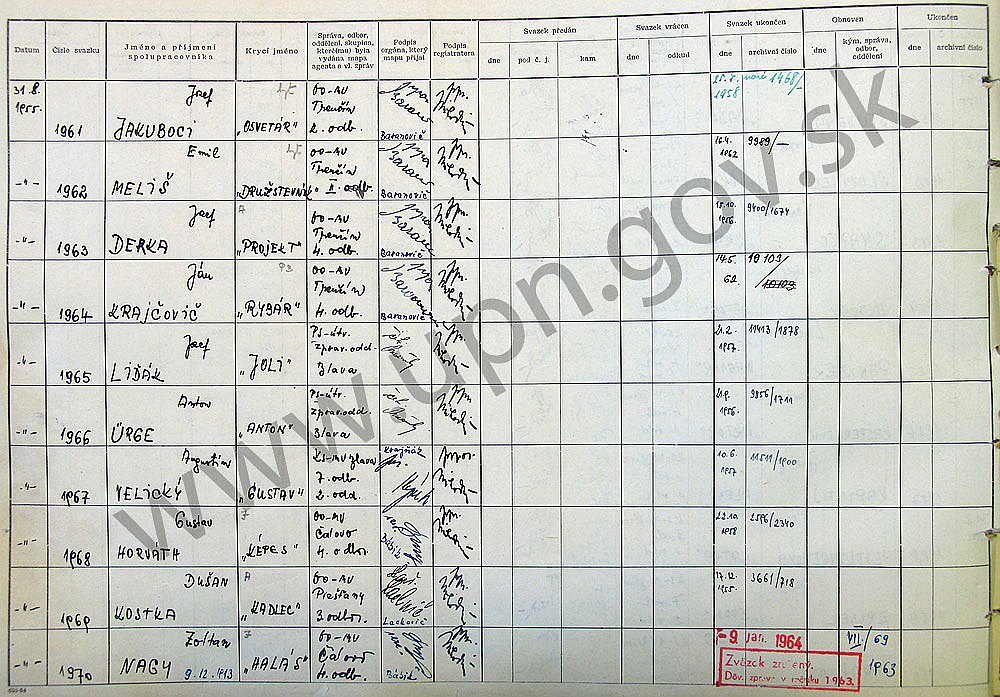 Datum
Číslo svazku
Jméno a příjmení
spolupracovníka
Krycí jméno
Správa, odbor,
oddělení, skupina,
kterě(mu) byla
vydána mapa
agenta a vl. zpráv
Podpis
orgána, který
mapu přijal
Podpis
registratora
Svazek předán
dne
pod č. j.
kam
Svazek vrácen
dne
odkud
Svazek ukončen
dne
archivní číslo
Obnoven
dne
kým, správa,
odbor,
oddělení
Ukončen
dne
archivní číslo
31.8.
1955.
1961
Jozef
JAKUBOCI
"OSVETÁR"
OO-AV
Trenčín
2. odb.
Baranovič
25.7.
1958
1468/-
-"-
1962
Emil
MELIŠ
"DRUŽSTEVNÍK"
OO-AV
Trenčín
II. odb.
Baranovič
16.4.
1962
9989/-
-"-
1963
Jozef
DERKA
A
"PROJEKT"
OO-AV
Trenčín
4. odb.
Baranovič
15.10.
1956.
9400/1674
-"-
1964
Ján
KRAJČOVIČ
"RYBÁR"
OO-AV
Trenčín
4. odb.
Baranovič
14.5.
62.
10103/
-"-
1965
Jozef
LIĎÁK
"JOLI"
PS-útv.
zprav.odd.
Blava
21.2.
1957.
11413/1878
-"-
1966
Anton
ÜRGE
"ANTON"
PS-útv.
zprav.odd.
Blava
1956.
9856/1711
-"-
1967
Augustín
VELICKÝ
"GUSTAV"
KS-MV Blava
7. odb.
2. odd.
Krajňák
10.6.
1957
11511/1900
-"-
1968
Gustav
HORVÁTH
"KÉPES"
OO-AV
Čalovo
4. odbor.
Bábik
22.10.
1958
2596/2340
-"-
1969
DUŠAN
KOSTKA
A
"KADLEC"
OO-AV
Piešťany
3. odbor.
Lackovič
17.12.
1955.
3661/718
-"-
1970
Zoltan
NAGY
9.12.1913
"HALÁS"
OO-AV
Čalovo
4. odbor.
Bábik
-9. jan. 1964
VII/69
1963
Zväzok zrušený.
Dôv. zprava v ročníku 1963.
www.upn.gov.sk